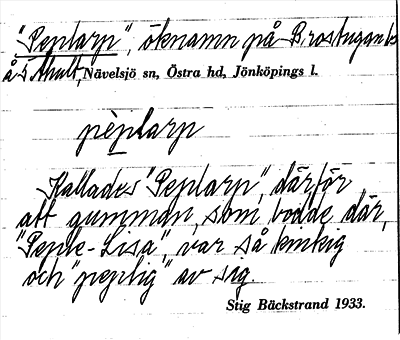 "Peplarp", öknamn på Brostugan
å s Ahult, Nävelsjö sn, Östra hd, Jönköpings l.
pèplarp
Kallades "Peplarp", därför
att gumman, som bodde där,
"Peple-Lisa", var så kinkig
och "peplig" av sig.
Stig Bäckstrand 1933.